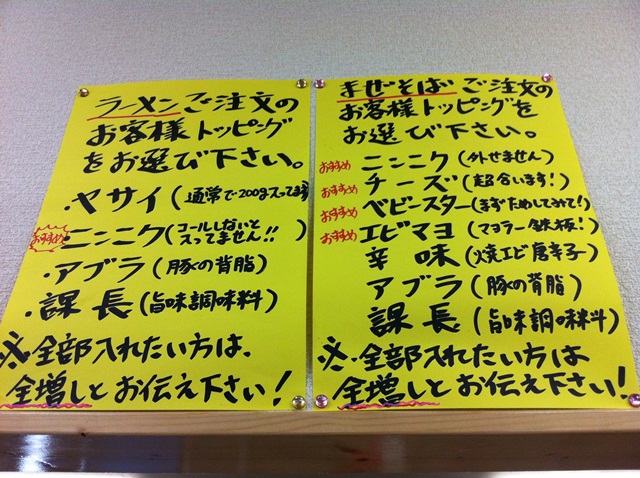 ラーメンご注文の
お客様トッピング
をお選び下さい。
・ヤサイ(通常で200g入ってます)
おすすめ ニンニク(コールしないと入ってません!!)
・アブラ(豚の背脂)
・課長(旨味調味料)
※全部入れたい方は、
全増しとお伝え下さい!
まぜそばご注文の
お客様トッピングを
お選び下さい。
おすすめ ニンニク(外せません)
おすすめ チーズ(超合います!)
おすすめ ベビースター(まずためしてみて!)
おすすめ エビマヨ(マヨラー鉄板!)
辛味(焼エビ唐辛子)
アブラ(豚の背脂)
課長(旨味調味料)
※全部入れたい方は
全増しとお伝え下さい!